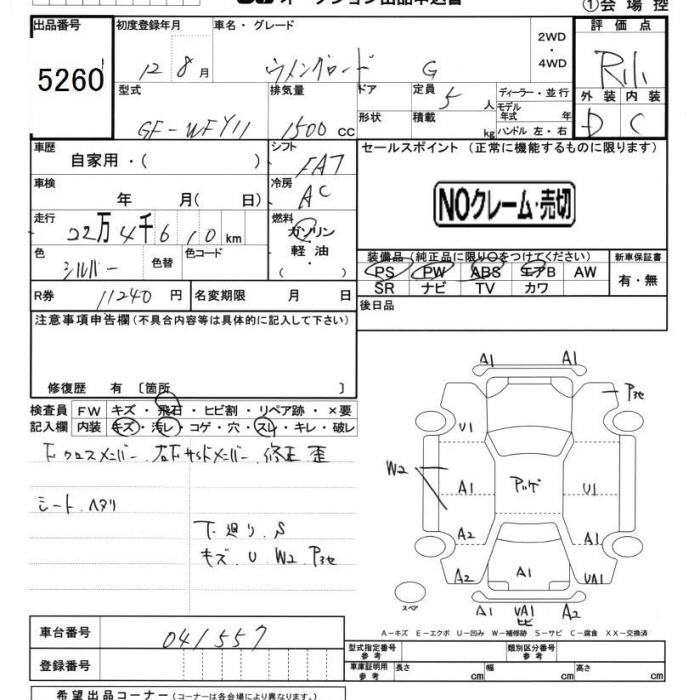 オークション出品申込書 ①会場控
出品番号 初度登録年月 車名・グレード 評価点
5260 12 8月 ウイングロード G 2WD・4WD R111
型式 排気量 ドア 定員 5 人 ディーラー・並行 外装 内装
GF-WFY11 1500 cc 形状 積載 kg モデル年式 年 ハンドル 左・右 D C
車歴 自家用・( ) シフト FAT セールスポイント (正常に機能するものに限ります)
車検 年 月( 日) 冷房 AC NOクレーム・売切
走行 22万4千610km 燃料 ガソリン・軽油
色 シルバー 色替 色コード 装備品(純正品に限り○をつけてください) 新車保証書
PS PW ABS エアB AW 有・無
R券 11240円 名変期限 月 日 SR ナビ TV カワ
注意事項申告欄(不具合内容等は具体的に記入して下さい) 後日品
修復歴 有〔箇所 〕
検査員 FW キズ・飛石・ヒビ割・リペア跡・×要
記入欄 内装 キズ・汚レ・コゲ・穴・スレ・キレ・破レ
Fクロスメンバー 右Fサイドメンバー 修正 歪
シート ヘタリ
下廻り S
キズ U W2 Pヨセ
A1 A1
Pヨセ
U1
W2 A1 アハゲ U1
A2 A1
A2 A1 UA1
スペア A1 UA1 A2
ヒビ
A-キズ E-エクボ U-凹み W-補修跡 S-サビ C-腐食 XX-交換済
車台番号 041557 型式指定番号 参考 類別区分番号 参考
登録番号 車庫証明用 参考 長さ cm 幅 cm 高さ cm
希望出品コーナー (コーナーは各会場により異なります。)